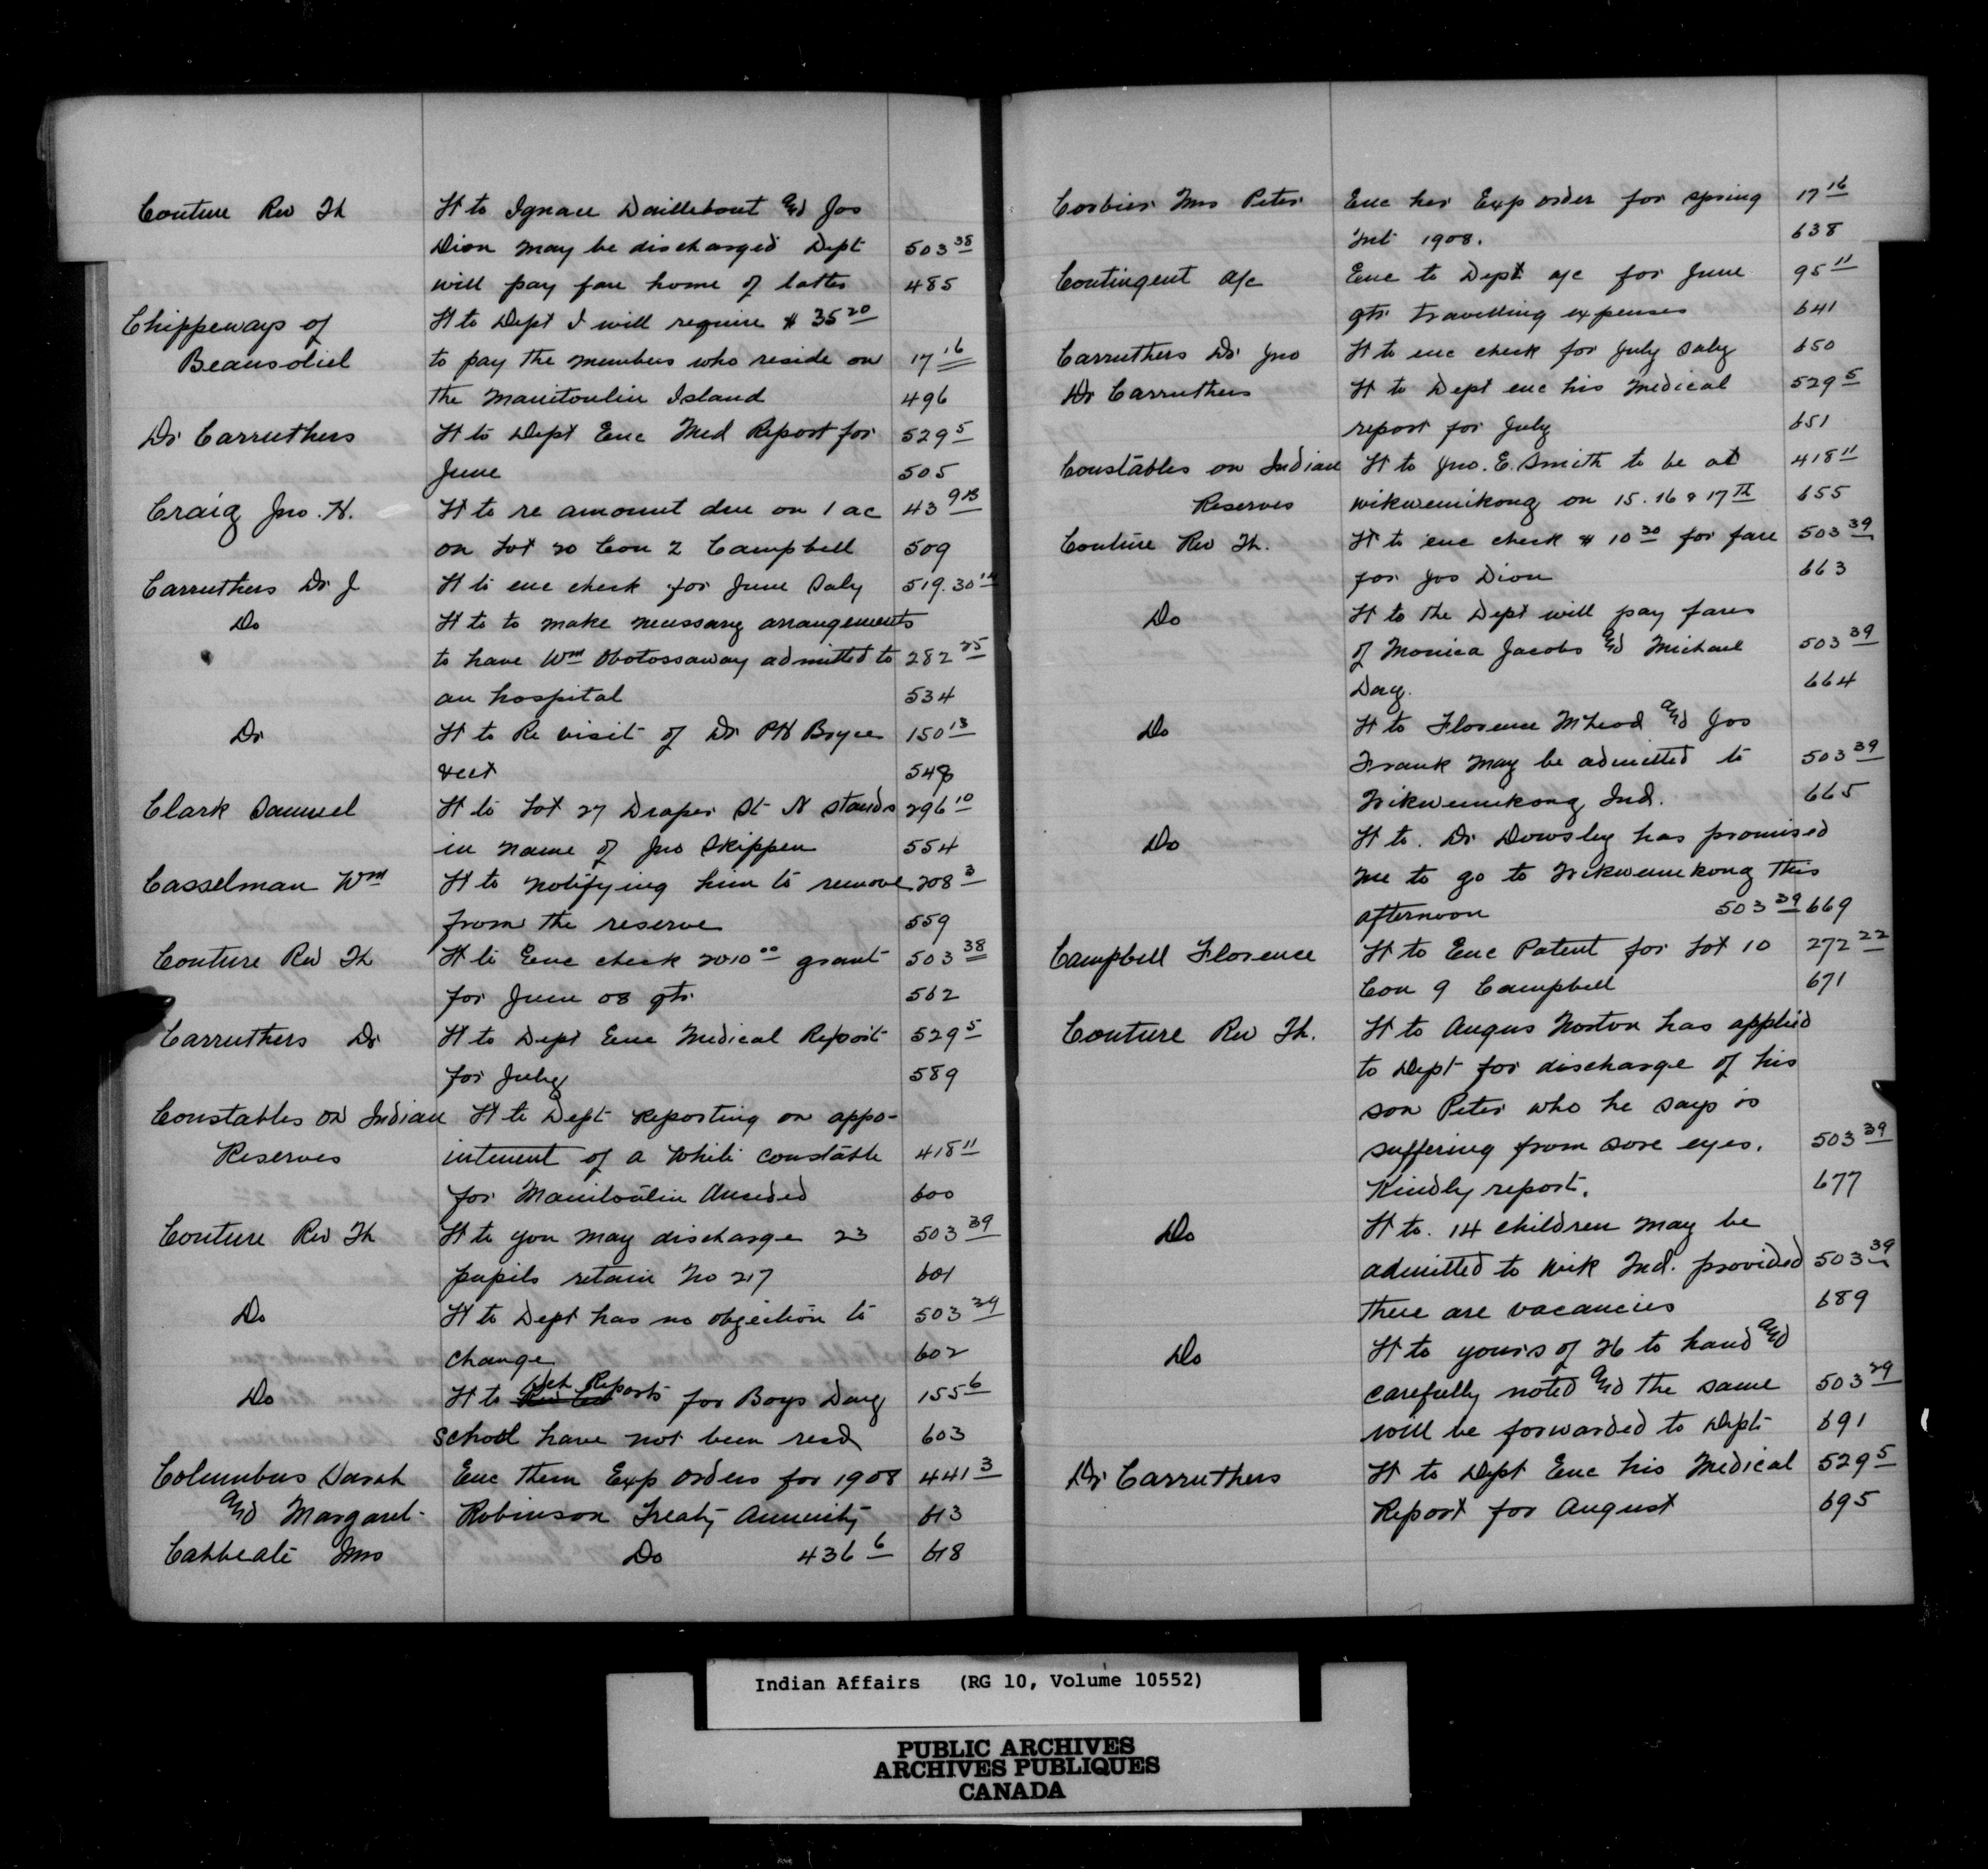 Couture Rev Th H to Ignace Daillebout and Jos
Dion may be discharged Dept 503 38
will pay fare home of latter 485
Chippeways of H to Dept I will require $ 35 20
Beausoliel to pay the members who reside on 17 16
the Manitoulin Island 496
Dr Carruthers H to Dept Enc Med Report for 529 5
June 505
Craig Jno. H. H to re amount due on 1 ac 43 9 13
on Lot 20 Con 2 Campbell 509
Carruthers Dr J H to enc check for June Saly 519.30 14
Do H to to make necessary arrangements
to have Wm Obotossaway admitted to 282 25
an hospital 534
Dr H to Re visit of Dr PH Bryce 150 13
548
Clark Samuel H to Lot 27 Draper St N stands 296 10
in name of Jno Skippen 554
Casselman Wm H to notifying him to remove 208 3
from the reserve 559
Couture Rev Th H to Enc check 2010 00 grant 503 38
for June 08 qtr 562
Carruthers Dr H to Dept Enc Medical Report 529 5
for July 589
Constables on Indian H to Dept Reporting on appo-
Reserves intment of a White constable 418 11
for Manitoulin Unceded 600
Couture Rev Th H to you may discharge 23 503 39
pupils retain No 217 601
Do H to Dept has no objection to 503 39
change 602
Do H to Sch Reports for Boys Day 155 6
School have not been recd 603
Columbus Sarah Enc them Exp orders for 1908 441 3
and Margaret Robinson Treaty Annuity 613
Cabbeate Mrs Do 436 6 618
Corbier Mrs Peter Enc her Exp order for spring 17 16
Int 1908. 638
Contingent a/c Enc to Dept a/c for June 95 11
qtr travelling expenses 641
Carruthers Dr Jno H to enc check for July Saly 650
Dr Carruthers H to Dept enc his Medical 529 5
report for July 651
Constables on Indian H to Jno. E. Smith to be at 418 11
Reserves Wikwemikong on 15. 16 & 17 th 655
Couture Rev Th. H to enc check $ 10 30 for fare 503 39
for Jos Dion 663
Do H to the Dept will pay fares
of Monica Jacobs and Michael 503 39
Day. 664
Do H to Florence McLeod and Jos
Frank may be admitted to 503 39
Wikwemikong Ind. 665
Do H to. Dr Dowsley has promised
me to go to Wikwemikong this
afternoon 503 39 669
Campbell Florence H to Enc Patent for Lot 10 272 22
Con 9 Campbell 671
Couture Rev Th. H to Angus Norton has applied
to Dept for discharge of his
son Peter who he says is
suffering from sore eyes. 503 39
Kindly report. 677
Do H to. 14 children may be
admitted to Wik Ind. provided 503 39
there are vacancies 689
Do H to yours of 26 to hand and
carefully noted and the same 503 39
will be forwarded to Dept 691
Dr Carruthers H to Dept Enc his Medical 529 5
Report for August 695
Indian Affairs (RG 10, Volume 10552)
PUBLIC ARCHIVES
ARCHIVES PUBLIQUES
CANADA